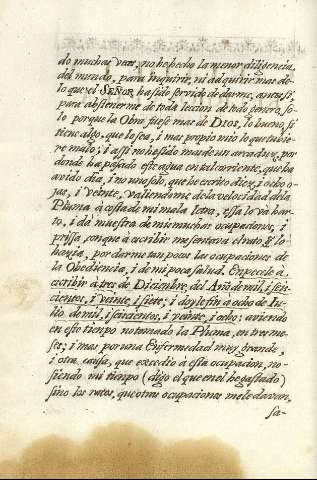 do muchas veces, no he hecho la menor diligencia,
del mundo, para inquirir, ni adquirir mas de
lo que el SEÑOR ha sido servido de darme, aun casi,
para abstenerme de toda leccion de todo genero, so-
lo porque la Obra fuese mas de DIOS, lo bueno, si
tiene algo, que lo sea, i mas propio mio lo que tubie-
re malo; i assi no he sido mas de un arcaduz, por
donde ha pasado este agua en tal corriente, que ha
avido dia, i no uno solo, que he escrito diez, i ocho o-
jas, i veinte, valiendome de la velocidad de la
Pluma à costa de mi mala letra, ella lo và har-
to, i dà muestra de mis muchas ocupaciones, i
prissa, con que à escribir me sentava el rato, ò lo
hazia, por darme tan pocos las ocupaciones de
la Obediencia, i de mi poca salud. Enpecele à
escribir à tres de Diciembre, del Año de mil, i seis-
cientos, i veinte, i siete; i doyle fin à ocho de Iu-
lio de mil, i seiscientos, i veinte, i ocho; aviendo
en este tienpo no tomado la Pluma, en tres me-
ses; i mas por una Enfermedad muy grande,
i otra causa, que excediò à esta ocupacion, no-
siendo mi tienpo (digo el que en el he gastado)
sino los ratos, que otras ocupaciones me le davan,
sa-